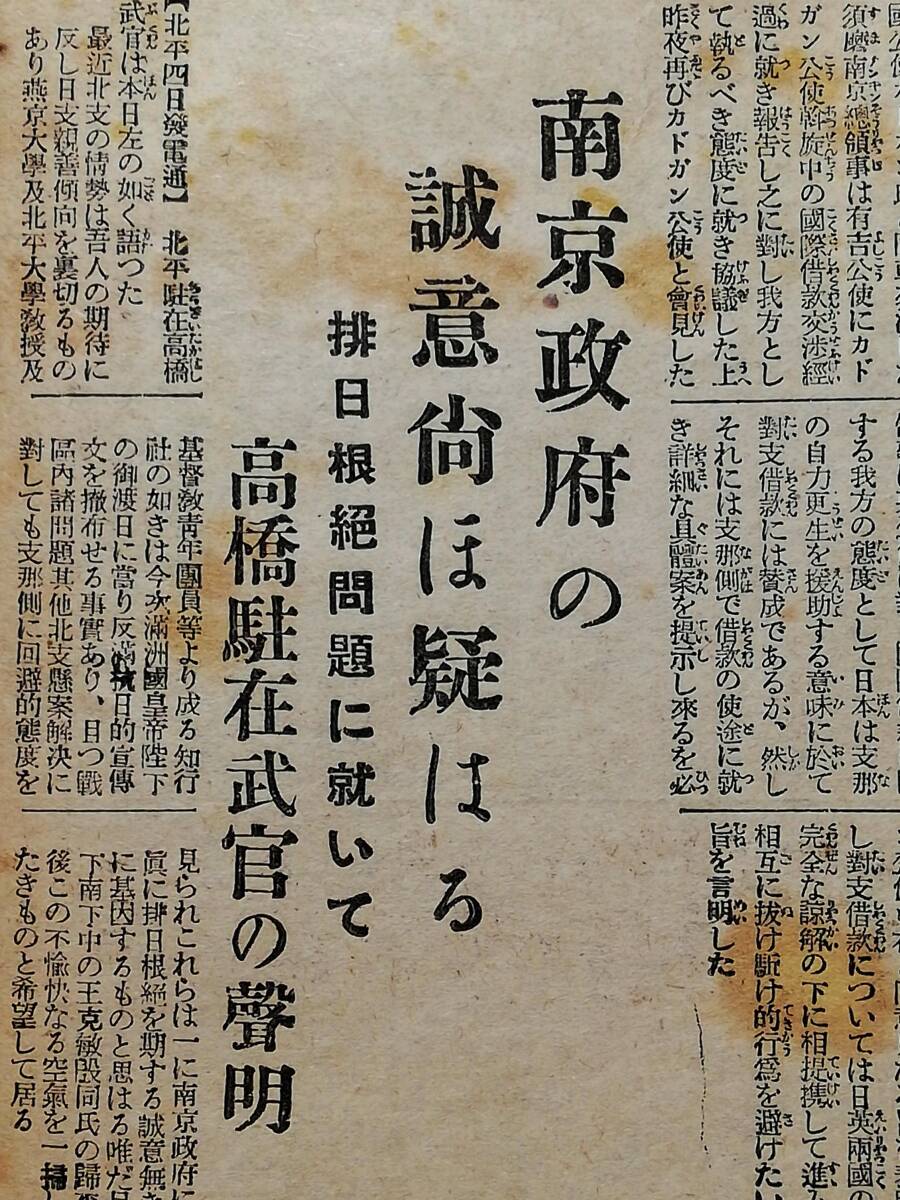 須磨南京總領事は有吉公使にカド
ガン公使斡旋中の國際借款交渉經
過に就き報告し之に對し我方とし
て執るべき態度に就き協議した上
昨夜再びカドガン公使と會見した
する我方の態度として日本は支那
の自力更生を援助する意味に於て
對支借款には賛成であるが、然し
それには支那側で借款の使途に就
き詳細な具體案を提示し來るを必
し對支借款については日英兩國の
完全な諒解の下に相提携して進み
相互に拔け駈け的行爲を避けたい
旨を言明した
南京政府の
誠意尙ほ疑はる
排日根絕問題に就いて
高橋駐在武官の聲明
【北平四日發電通】　北平駐在高橋
武官は本日左の如く語つた
最近北支の情勢は吾人の期待に
反し日支親善傾向を裏切るもの
あり燕京大學及北平大學敎授及
基督敎靑年團員等より成る知行
社の如きは今次滿洲國皇帝陛下
の御渡日に當り反滿抗日的宣傳
文を撤布せる事實あり、且つ戰
區內諸問題其他北支懸案解決に
對しても支那側に回避的態度を
見られこれらは一に南京政府に
眞に排日根絕を期する誠意無き
に基因するものと思はる唯だ
下南下中の王克敏殷同氏の歸
後この不愉快なる空氣を一掃し
たきものと希望して居る